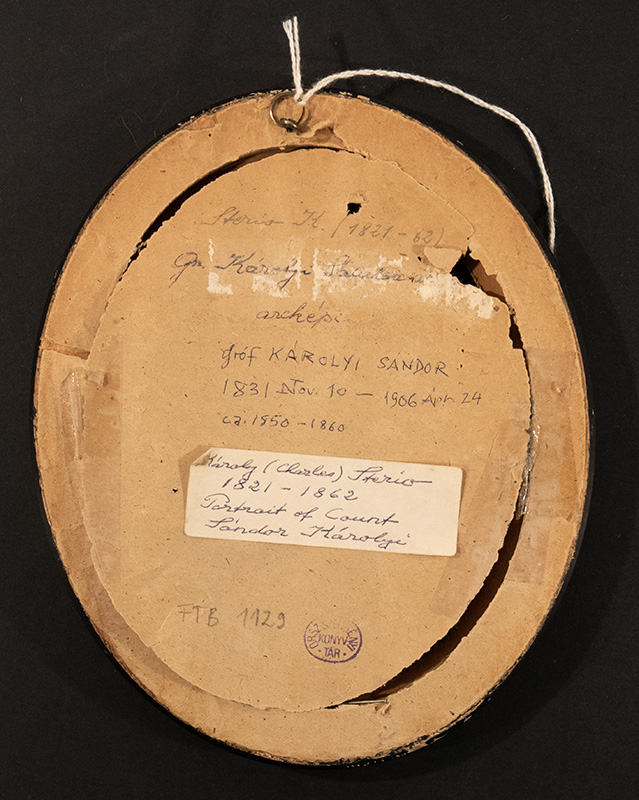 Sterio K. (1821-62)
Gr. Károlyi
arcképe
gróf KÁROLYI SÁNDOR
1831 Nov. 10 – 1906 Ápr. 24
ca. 1850-1860
Károly (Charles) Sterio
1821-1862
Portrait of Count
Sándor Károlyi
FTB 1129
KÖNYV
TÁR